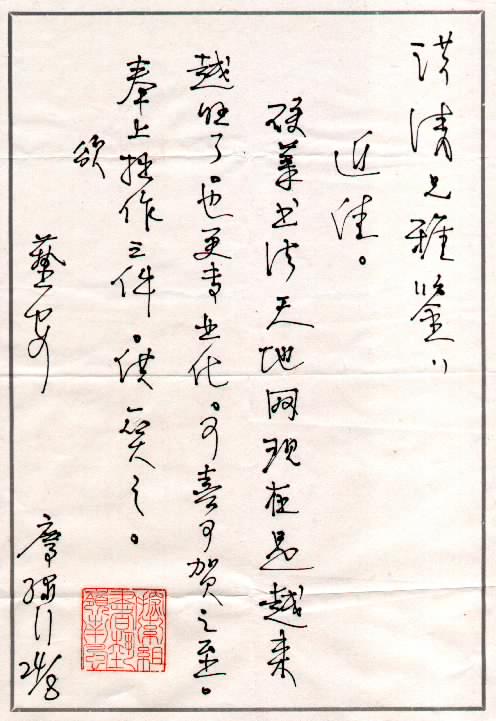 清兄雅鉴：
近佳。
硬笔书法天地网现在是越来
越旺了。也更专业化。可喜可贺之至。
奉上拙作三件。供一笑之。
颂
艺安
24/8